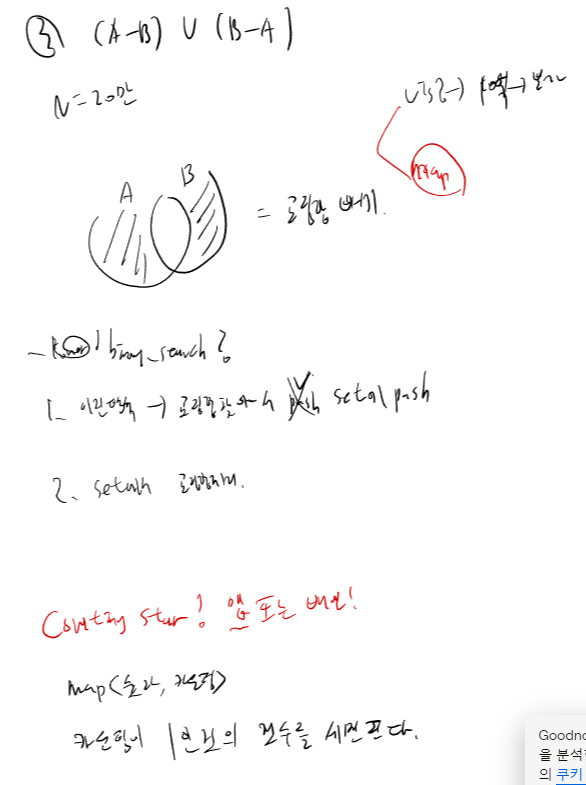 ③ (A-B) ∪ (B-A)
N=20만
map
A B
= 교집합 빼기.
binary_search?
1. 이진탐색 → 교집합 찾아서 push set에 push
2. set에서 교집합
Counting Star! 맵 또는 배열!
map<숫자, 카운팅>
카운팅이 1인것의 갯수를 세면된다.
Goodno
을 분석
의 쿠키